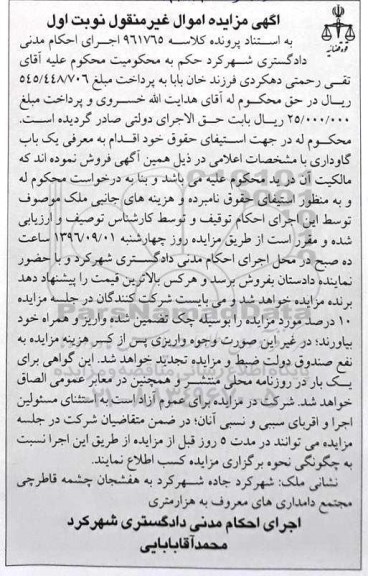 آگهی مزایده اموال غیرمنقول نوبت اول
قوه قضائیه
به استناد پرونده کلاسه ۹۶۱۷۶۵ اجرای احکام مدنی
دادگستری شهرکرد حکم به محکومیت محکوم علیه آقای
تقی رحمتی دهکردی فرزند خان بابا به پرداخت مبلغ ۵۴۵/۴۴۸/۷۰۶
ریال در حق محکوم له آقای هدایت الله خسروی و پرداخت مبلغ
۲۵/۰۰۰/۰۰۰ ریال بابت حق الاجرای دولتی صادر گردیده است.
محکوم له در جهت استیفای حقوق خود اقدام به معرفی یک باب
گاوداری با مشخصات اعلامی در ذیل همین آگهی فروش نموده اند که
مالکیت آن در ید محکوم علیه می باشد و بنا به درخواست محکوم له
و به منظور استیفای حقوق نامبرده و هزینه های جانبی ملک موصوف
توسط این اجرای احکام توقیف و توسط کارشناس توصیف و ارزیابی
شده و مقرر است از طریق مزایده روز چهارشنبه ۱۳۹۶/۰۹/۰۱ ساعت
ده صبح در محل اجرای احکام مدنی دادگستری شهرکرد و با حضور
نماینده دادستان بفروش برسد و هرکس بالاترین قیمت را پیشنهاد دهد
برنده مزایده خواهد شد و می بایست شرکت کنندگان در جلسه مزایده
۱۰ درصد مورد مزایده را بوسیله چک تضمین شده واریز و همراه خود
بیاورند؛ در غیر این صورت وجوه واریزی پس از کسر هزینه مزایده به
نفع صندوق دولت ضبط و مزایده تجدید خواهد شد. این گواهی برای
یک بار در روزنامه محلی منتشر و همچنین در معابر عمومی الصاق
خواهد شد. شرکت در مزایده برای عموم آزاد است به استثنای مسئولین
اجرا و اقربای سببی و نسبی آنان؛ در ضمن متقاضیان شرکت در جلسه
مزایده می توانند در مدت ۵ روز قبل از مزایده از طریق این اجرا نسبت
به چگونگی نحوه برگزاری مزایده کسب اطلاع نمایند.
نشانی ملک: شهرکرد جاده شهرکرد به هفشجان چشمه قاطرچی
مجتمع دامداری های معروف به هزارمتری
اجرای احکام مدنی دادگستری شهرکرد
محمدآقابابایی